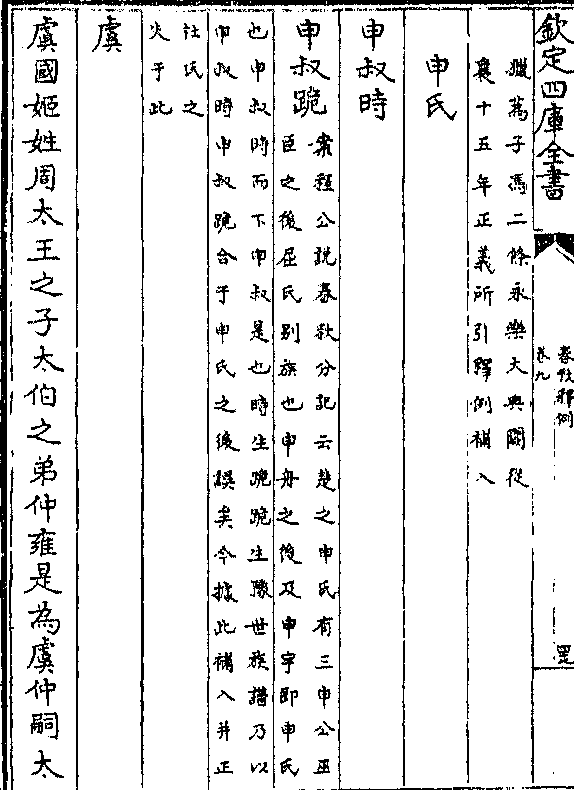 欽定四庫全書
春秋釋例
卷九
罡
獵蒍子馮二條永樂大典闕從
襄十五年正義所引釋例補入
申氏
申叔時
申叔跪
案程公說春秋分記云楚之申氏有三申公巫
臣之後屈氏别族也申舟之後及申宇即申氏
也申叔時而下申叔是也時生跪跪生豫世族譜乃以
申叔時申叔跪合于申氏之後誤矣今據此補入并正
杜氏之
失于此
虞
虞國姬姓周太王之子太伯之弟仲雍是為虞仲嗣太